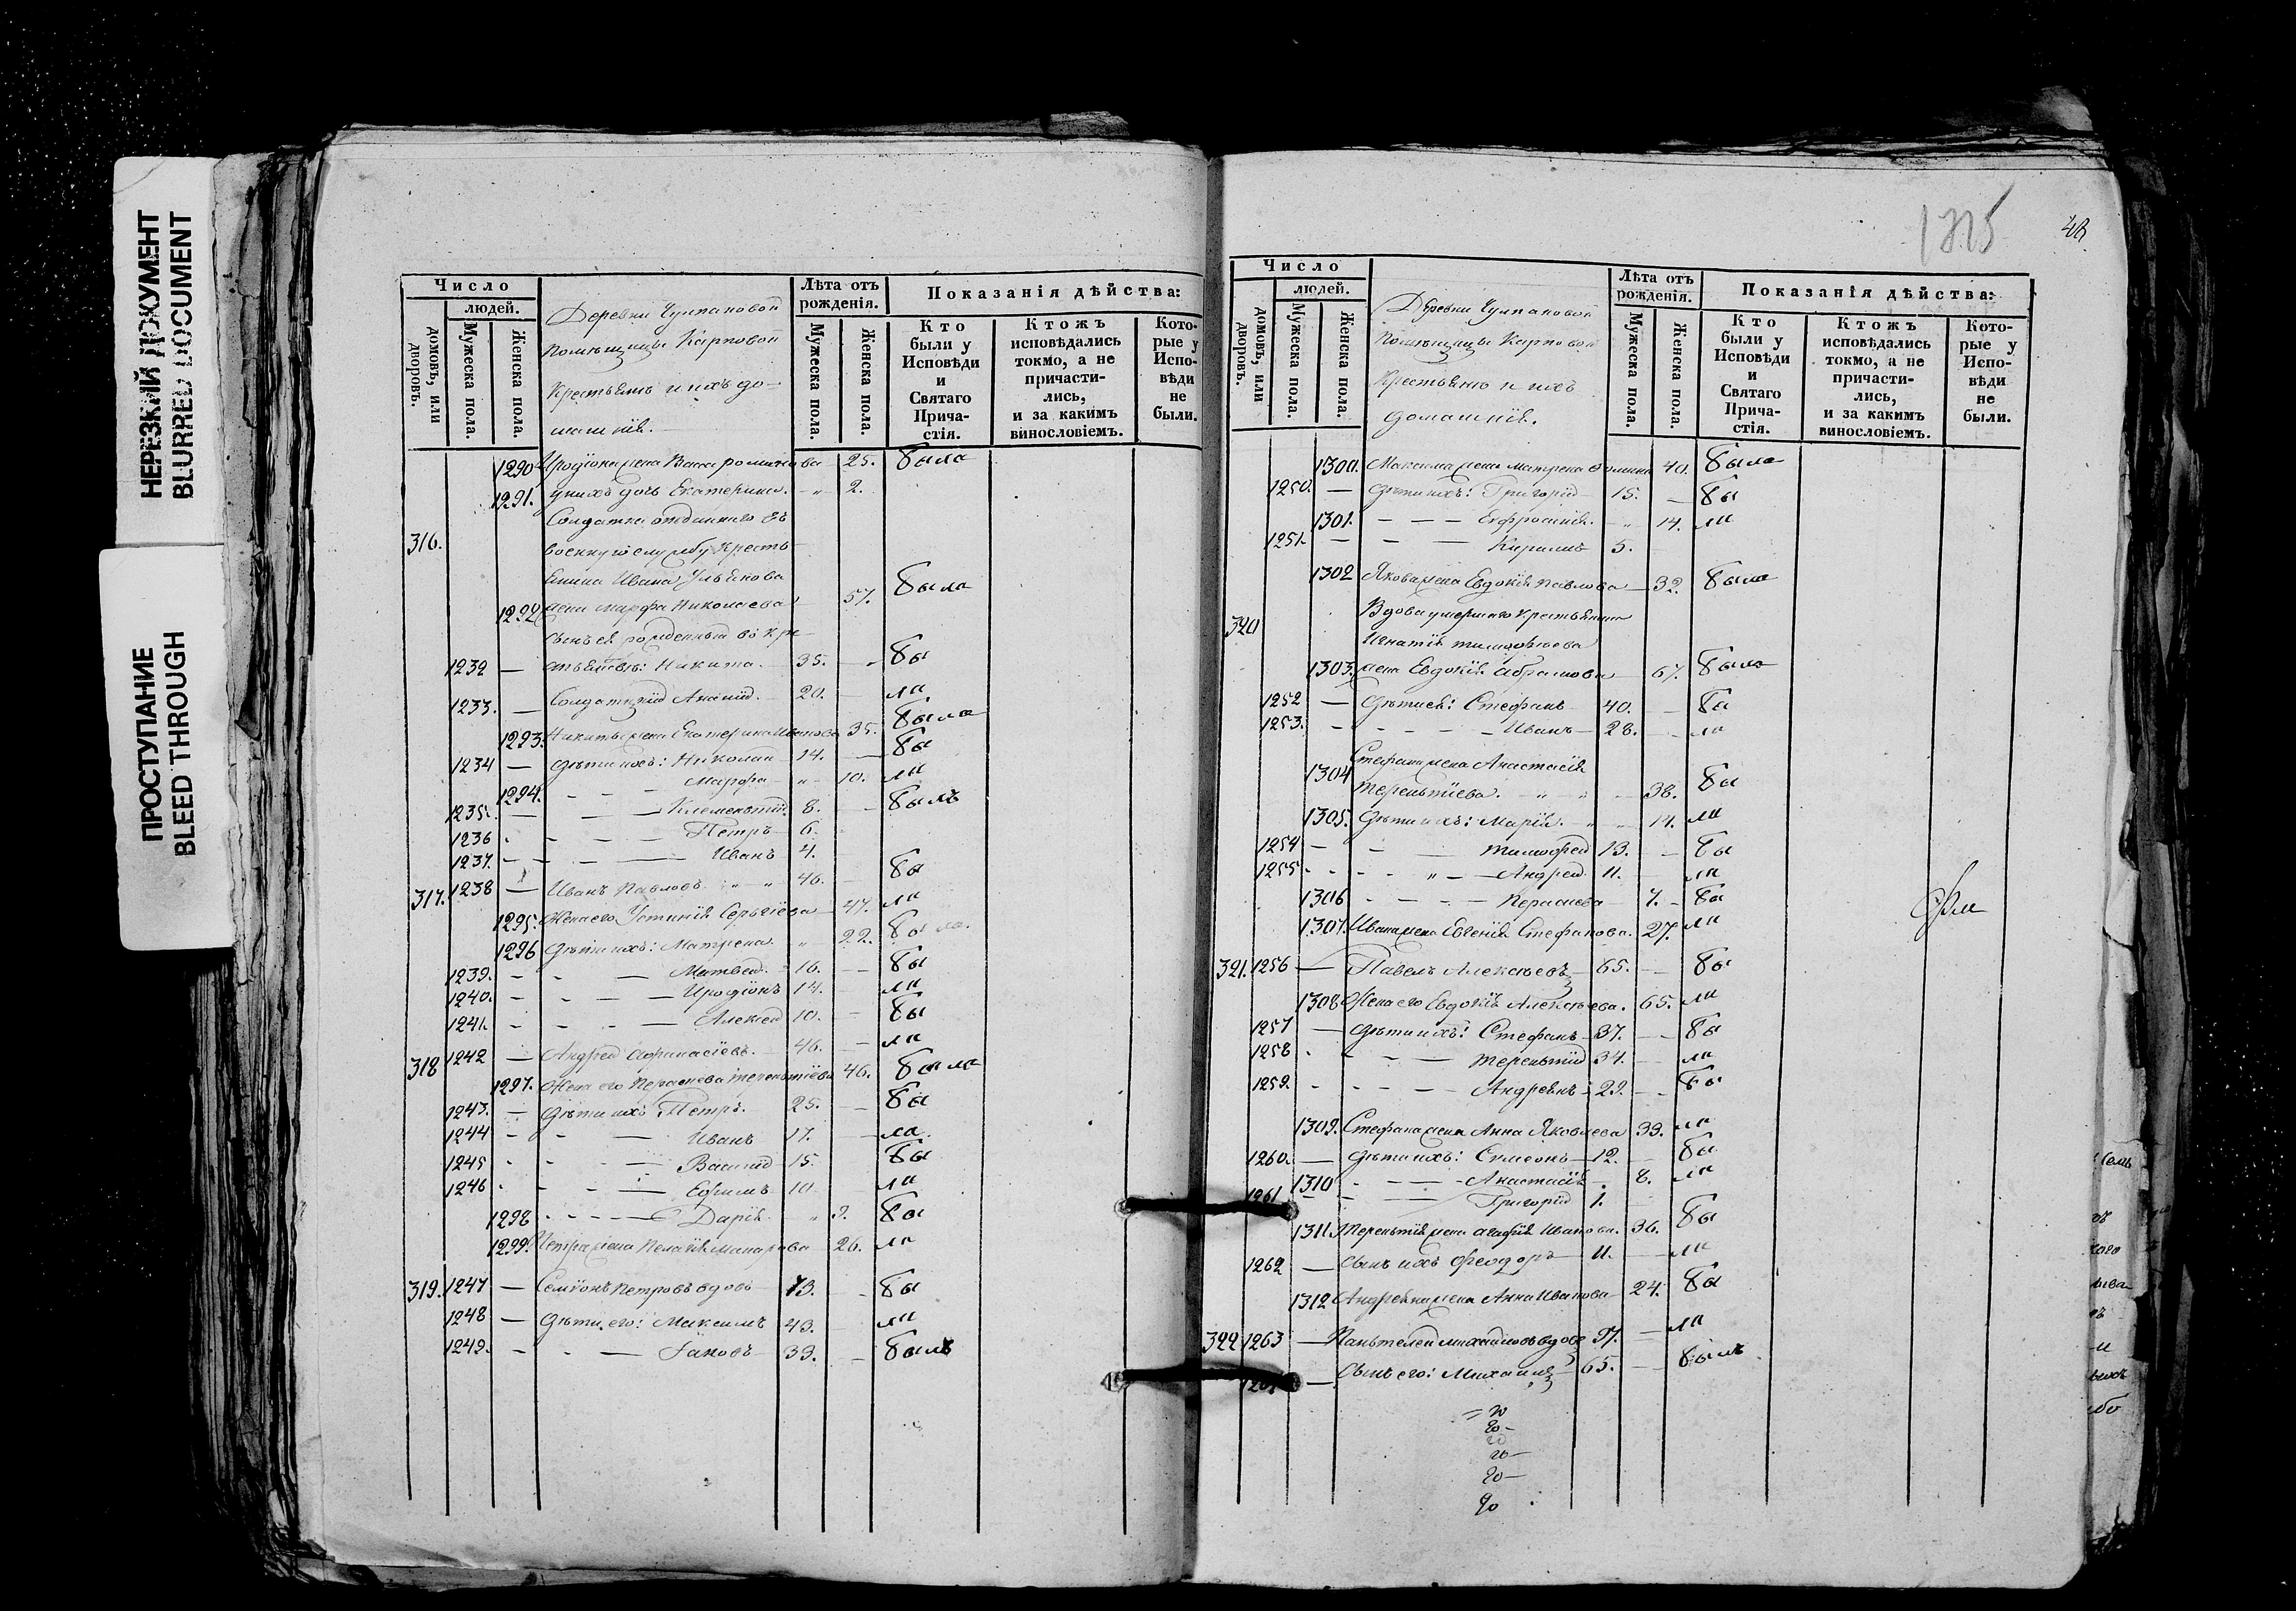 НЕРЕЗКИЙ ДОКУМЕНТ
BLURRED DOCUMENT
ПРОСТУПАНИЕ
BLEED THROUGH
Число
людей.
домовъ, или дворовъ.
Мужеска пола.
Женска пола.
Деревни Чулпановой
помѣщицы Карповой
Крестьянъ и ихъ до-
машнія.
Лѣта отъ рожденія.
Мужеска пола.
Женска пола.
Показанія дѣйства:
Кто были у Исповѣди и Святаго Причастія.
Ктожъ исповѣдались токмо, а не причастились, и за какимъ винословіемъ.
Которые у Исповѣди не были.
1290 Иродіона жена Васса романова 25. была
1291. у нихъ дочь Екатерина. - " - 2.
Солдатка отданнаго въ
316. военную службу кресть-
янина Ивана Ульянова
1292 жена Марфа Николаева 57. была
сынъ ея рожденный въ кре-
1232 — стьянствѣ: Никита. 35. бы
1233. — Солдатскій Ананій. 20. ли
1293. Никиты жена Екатерина Иванова 35. была
1234 — дѣти ихъ: Николай 14. бы
1294. - - - Марфа " 10. ли
1235. — - — Климентій. 8. былъ
1236 - - — Петръ 6.
1237. - - — Иванъ 4.
317. 1238 — Иванъ Павловъ " " 46. бы
1295. Жена его Устинія Сергіева 47. ли
1296 дѣти ихъ: Матрена. " 22. была.
1239. - - — Матвей. 16. бы
1240. - - — Иродіонъ 14. ли
1241. - - — Алексей 10. бы
318 1242 — Андрей Афанасіевъ. 46. ли
1297. Жена его Параскева терентіева 46. была
1243. — дѣти ихъ Петръ. 25. бы
1244 - - — Иванъ 17. ли.
1245 - - — Василій 15. бы
1246 - - — Ефимъ 10. ли
1298 - - — Дарія " 9. бы
1299. Петра жена Пелагія Макарова 26. ли
319. 1247 — Семіонъ Петровъ вдовъ 73. бы
1248 — дѣти его: Максимъ 43. ли
1249. - - — Іаковъ 33. былъ
1325
48
Число
людей.
домовъ, или дворовъ.
Мужеска пола.
Женска пола.
Деревни Чулпановой
помѣщицы Карповой
Крестьяне и ихъ
домашнія.
Лѣта отъ рожденія.
Мужеска пола.
Женска пола.
Показанія дѣйства:
Кто были у Исповѣди и Святаго Причастія.
Ктожъ исповѣдались токмо, а не причастились, и за какимъ винословіемъ.
Которые у Исповѣди не были.
1300. Максима жена Матрена Фомина 40. была
1250. — дѣти ихъ: Григорій 15. — бы
1301. - - - Евфросинія. " 14. ли
1251. — - — Кириллъ 5.
1302 Якова жена Евдокія Павлова 32. была
320 Вдова умершаго крестьянина
Игнатія тимофеева
1303. жена Евдокія Абрамова 67. была
1252 — дѣти ея: Стефанъ 40. бы
1253. - - - Иванъ 28. ли
1304 Стефана жена Анастасія
терентіева. - " - " 38. бы
1305. дѣти ихъ: Марія. " 14. ли
1254 — - — тимофей 13. — бы
1255 - - - " — Андрей. 11. ли
1306 - - - Параскева 7. бы
1307. Ивана жена Евгенія Стефанова. 27. ли
321. 1256 — Павелъ Алексѣевъ 65. — бы
1308 Жена его Евдокія Алексѣева. 65. ли
1257 — дѣти ихъ: Стефанъ 37. — бы
1258 - - — терентій 34. — ли
1259. - - — Андреянъ 29. — бы
1309. Стефана жена Анна Яковлева 33. ли
1260. — дѣти ихъ: Симеонъ 12. бы
1310 - - — Анастасія. 8. ли
1261 — - — Григорій 1.
1311. терентія жена Агафія Иванова. 36. бы
1262 — Сынъ ихъ Феодоръ 11. — ли
1312 Андреяна жена Анна Иванова 24. бы
322 1263 — Пантелей михайловъ вдовъ 97. — ли
— Сынъ его: Михаилъ 65. — былъ
20 —
20 —
20 —
20